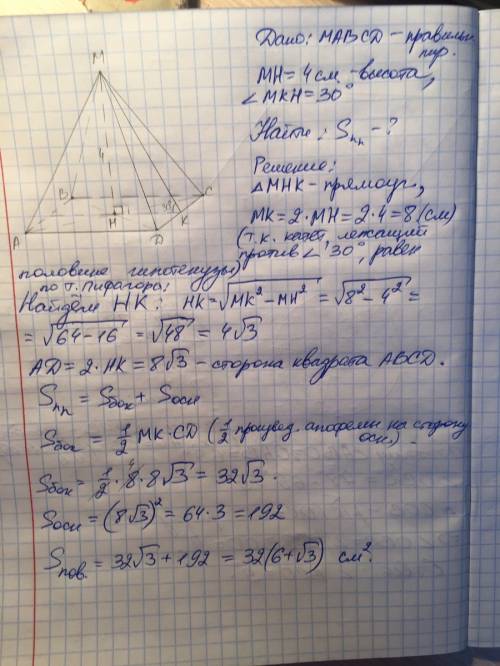 Дано: MABCD – правильн.
пир.
MH = 4 см – высота,
∠MKH = 30°
Найти: Sпп – ?
Решение:
△MHK – прямоуг.,
MK = 2·MH = 2·4 = 8 (см)
(т.к. катет, лежащий
против ∠ 30°, равен
половине гипотенузы)
по т. Пифагора:
Найдём HK: HK = √MK² – MH² = √8² – 4² =
= √64 – 16 = √48 = 4√3
AD = 2·HK = 8√3 – сторона квадрата ABCD.
Sпп = Sбок + Sосн
Sбок = 1/2 MK·CD (1/2 произвед. апофемы на сторону
осн.)
Sбок = 1/2·8·8√3 = 32√3.
Sосн = (8√3)² = 64·3 = 192
Sпов. = 32√3 + 192 = 32(6+√3) см².
M
4
B
C
30°
K
H
A
D